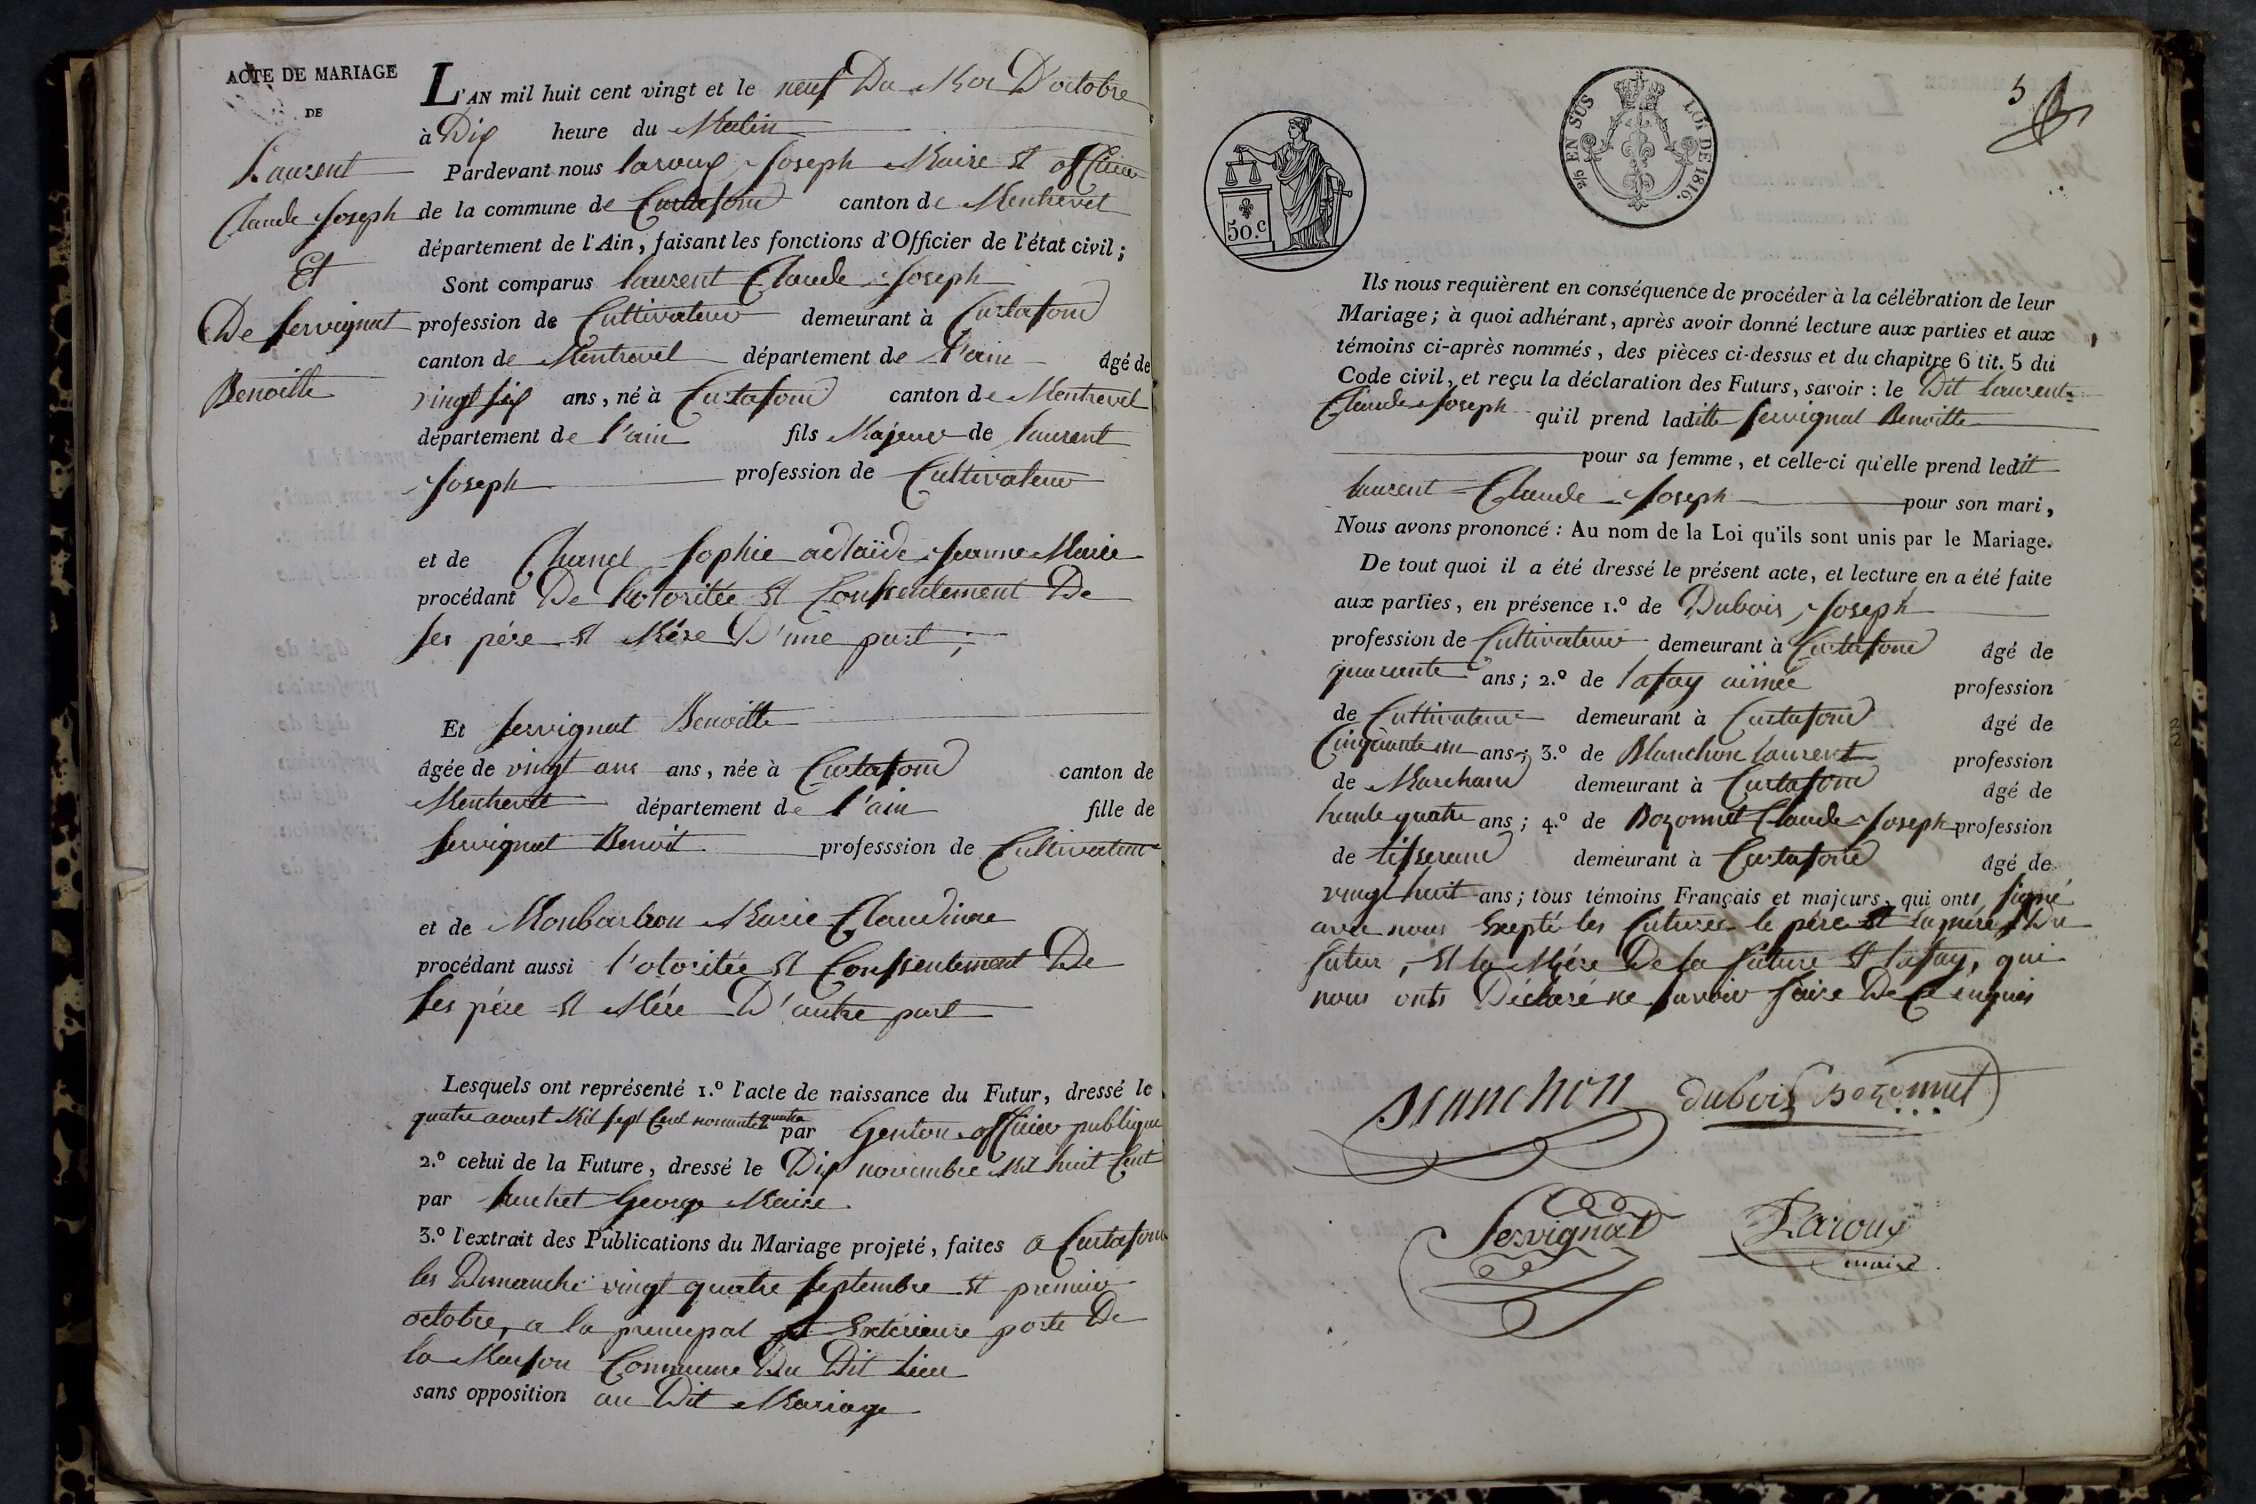 ACTE DE MARIAGE
DE
Laurent
Claude Joseph
Et
De Servignat
Benoitte
L'AN mil huit cent vingt et le neuf Du Moi D'octobre
à Dix heure du Matin
Pardevant nous laroux Joseph Maire et officier
de la commune de Curtafond canton de Montrevel
département de l'Ain, faisant les fonctions d'Officier de l'état civil;
Sont comparus laurent Claude Joseph
profession de Cultivateur demeurant à Curtafond
canton de Montrevel département de l'ain âgé de
vingt six ans, né à Curtafond canton de Montrevel
département de l'ain fils Majeur de laurent
Joseph profession de Cultivateur
et de Chanel Sophie adlaïde Jeanne Marie
procédant De l'lotoritée et Consentement De
ses pére et Mére D'une part;
Et Servignat Benoitte
âgée de vingt ans ans, née à Curtafond canton de
Montrevel département de l'ain fille de
Servignat Benoit professsion de Cultivateur
et de Monbarbon Marie Claudinne
procédant aussi l'otoritée et Consentement De
ses pére et Mére D'autre part
Lesquels ont représenté 1.º l'acte de naissance du Futur, dressé le
quatre aoust Mil sept Cent nonante quatre par Genton officier publique
2.º celui de la Future, dressé le Dix novembre Mil huit Cent
par George Maire
3.º l'extrait des Publications du Mariage projeté, faites a Curtafond
les Dimanche vingt quatre septembre et premier
octobre, a la principal et Extérieure porte De
la Maison Commune Du Dit lieu
sans opposition au Dit Mariage
5
2/5 EN SUS LOI DE 1816.
50.c
Ils nous requièrent en conséquence de procéder à la célébration de leur
Mariage; à quoi adhérant, après avoir donné lecture aux parties et aux
témoins ci-après nommés, des pièces ci-dessus et du chapitre 6 tit. 5 du
Code civil, et reçu la déclaration des Futurs, savoir: le Dit laurent
Claude Joseph qu'il prend laditte Servignat Benoitte
pour sa femme, et celle-ci qu'elle prend ledit
laurent Claude Joseph pour son mari,
Nous avons prononcé: Au nom de la Loi qu'ils sont unis par le Mariage.
De tout quoi il a été dressé le présent acte, et lecture en a été faite
aux parties, en présence 1.º de Dubois Joseph
profession de Cultivateur demeurant à Curtafond âgé de
quarante ans; 2.º de lafay aimée profession
de Cultivateur demeurant à Curtafond âgé de
Cinquante un ans; 3.º de Blanchon laurent profession
de Marchand demeurant à Curtafond âgé de
trente quatre ans; 4.º de Bozonnet Claude Joseph profession
de tisserand demeurant à Curtafond âgé de
vingt huit ans; tous témoins Français et majeurs, qui onts signé
avec nous Excepté les futures le pére et la mére Du
futur, et la Mére De la future et lafay, qui
nous onts Déclaré ne savoir faire De Ce enquis
Blanchon Dubois Bozonnet
Servignat Laroux
maire